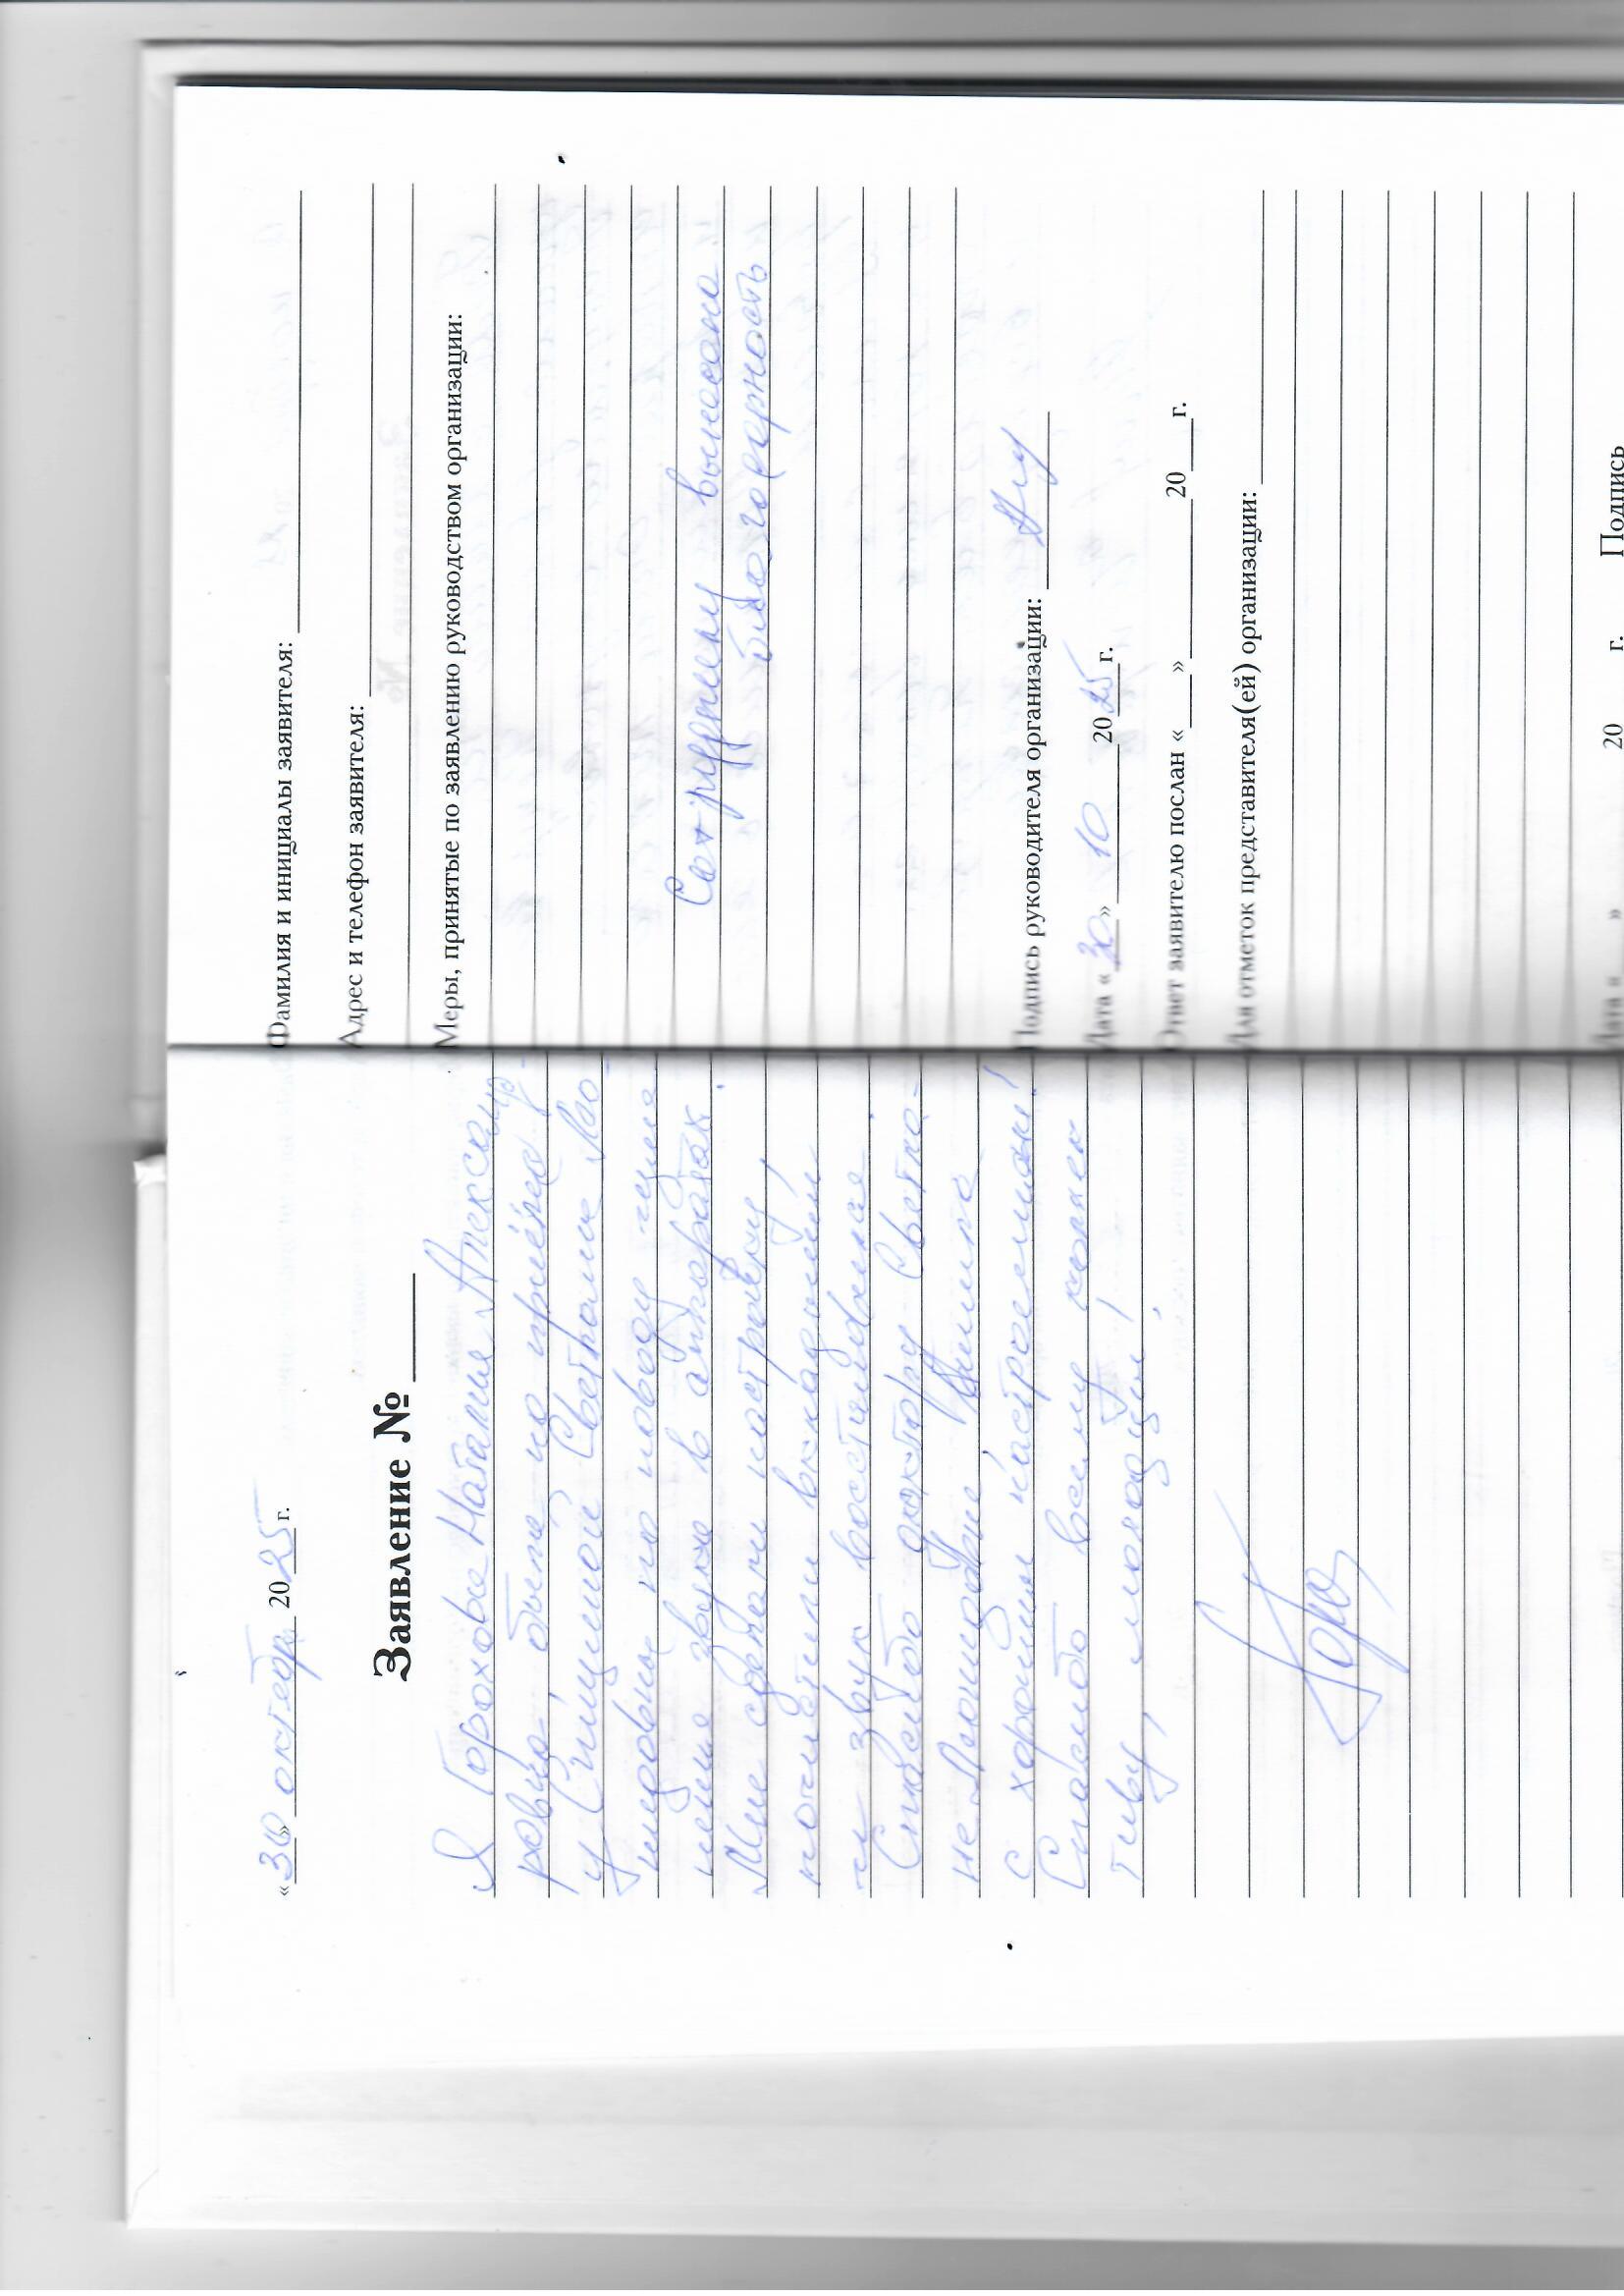 «30» октября 2025 г.
Заявление №
Я Горохова Наталия Александ-
ровна, была на приёме
у Синициной Светланы Лео-
нидовны по поводу
звука в аппарат
Мне сделали настройку!
почистили вкладыши
и звук восстановился
Спасибо доктору Светла-
не Леонидовне
с хорошим настроением!
Спасибо всему коллек-
тиву, молодцы!
Фамилия и инициалы заявителя:
Адрес и телефон заявителя:
Меры, принятые по заявлению руководством организации:
Сотруднику вынесена
благодарность
Подпись руководителя организации:
Дата «30» 10 2025 г.
Ответ заявителю послан « » 20 г.
Для отметок представителя(ей) организации:
Дата « » 20 г. Подпись